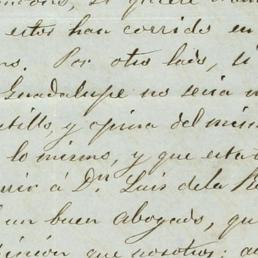 estos han corrido en
Por otro lado, si
Guadalupe no seria
y opina del mism
lo mismo, y que esta
á Dn. Luis de la R
un buen Abogado, qu
que nosotros: